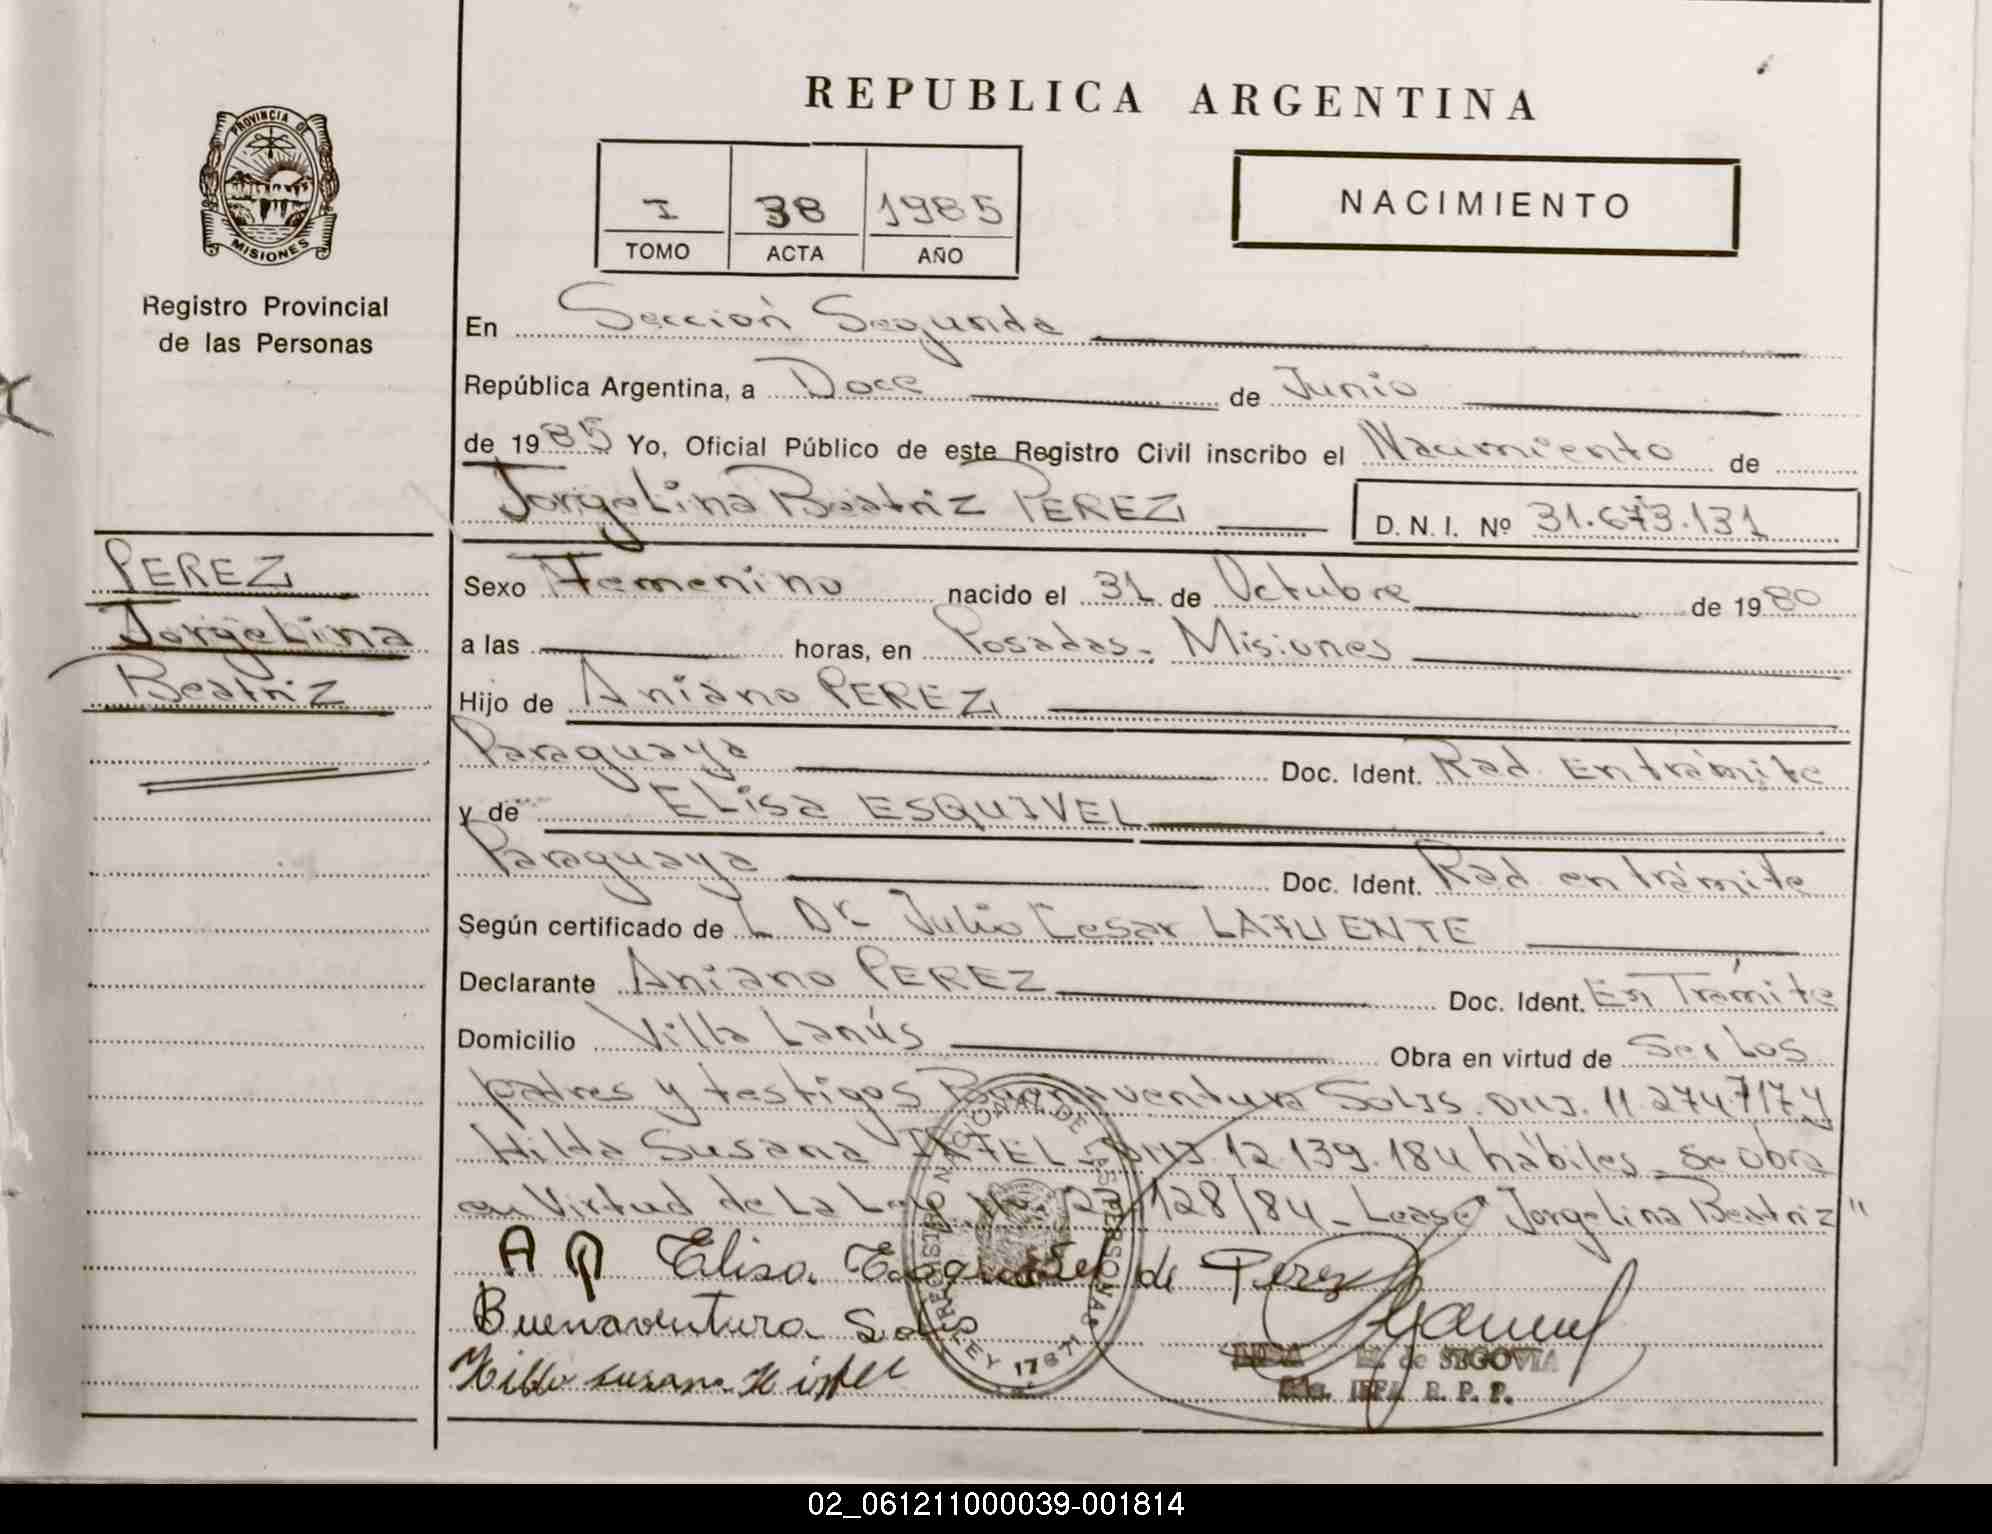 REPUBLICA ARGENTINA
PROVINCIA DE
MISIONES
Registro Provincial
de las Personas
I 38 1985
TOMO ACTA AÑO
NACIMIENTO
En Sección Segunda
República Argentina, a Doce de Junio
de 1985 Yo, Oficial Público de este Registro Civil inscribo el Nacimiento de
Jorgelina Beatriz PEREZ D.N.I. Nº 31.673.131
PEREZ
Jorgelina
Beatriz
Sexo Femenino nacido el 31 de Octubre de 1980
a las horas, en Posadas - Misiones
Hijo de Aniano PEREZ
Paraguaya Doc. Ident. Rad. En trámite
y de ELisa ESQUIVEL
Paraguaya Doc. Ident. Rad en trámite
Según certificado de L Dr Julio Cesar LAFUENTE
Declarante Aniano PEREZ Doc. Ident. En Trámite
Domicilio Villa Lanús Obra en virtud de Ser Los
padres y testigos Buenaventura SOLIS. DNI. 11.274.717 y
Hilda Susana 12.139.184 hábiles - Se obra
en Virtud de La Ley No. 128/84 - Lease "Jorgelina Beatriz"
A P Elisa Esquivel de Perez
Buenaventura Solis
REGISTRO NACIONAL DE LAS PERSONAS
LEY 17671
M. de SEGOVIA
R. P. P.
02_061211000039-001814